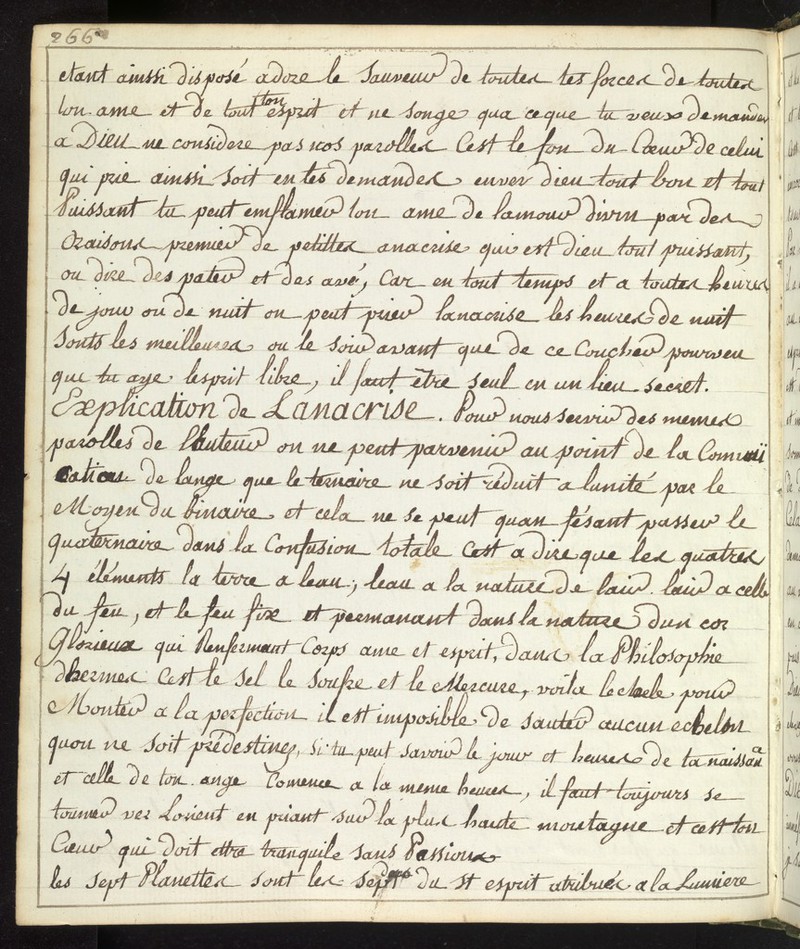 266
etant ainssi disposé adore le Sauveur de toutes tes forces de toutes
ton ame et de tout ton esprit et ne songe qua ceque tu veux demander
a Dieu ne considere pas nos parolles Cest le fon du Cœur de celui
qui prie ainssi Soit en tes demandes enver dieu tout bon et tout
Puissant tu peut emflamer ton ame de lamour divin par des
Oraisons premier de petittes anacrise qui est dieu tout puissant,
ou dire des pater et des avé, Car en tout temps et a toutes heures
de jour ou de nuit on peut prier lanacrise les heures de nuit
Sonts les meilleures ou le Soir avant que de ce Coucher pourveu
que tu aye lesprit libre, il faut être seul en un lieu secret.
Explication de Lanacrise. Pour nous servir des memes
parolles de lauteur on ne peut parvenir au point de la Comuni
cation de lange que le ternaire ne soit réduit a lunité par le
Moyen du binaire et cela ne se peut quan fésant passer le
quaternaire dans la Confusion totale Cest a dire que les quatres
4 éléments la terre a leau, leau a la nature de lair lair a celle
du feu, et le feu fixe et permanant dans la nature dun cor
Glorieux qui Renfermant Corps ame et esprit, dans la Philosophie
dhermes Cest le Sel le Soufre et le Mercure, voila lechele pour
Monter a la perfection il est imposible de sauter aucun echelon
quon ne soit prédestinez, Si tu peut savoir le jour et heures de ta naissan
et celle de ton ange Comence a la meme heures, il faut toujours se
tourner ver Lorient en priant sur la plus haute montagne et cest ton
Cœur qui doit etre tranquile sans Passions
les Sept Planettes sont les Sept dons du st esprit atribués a la Lumiere